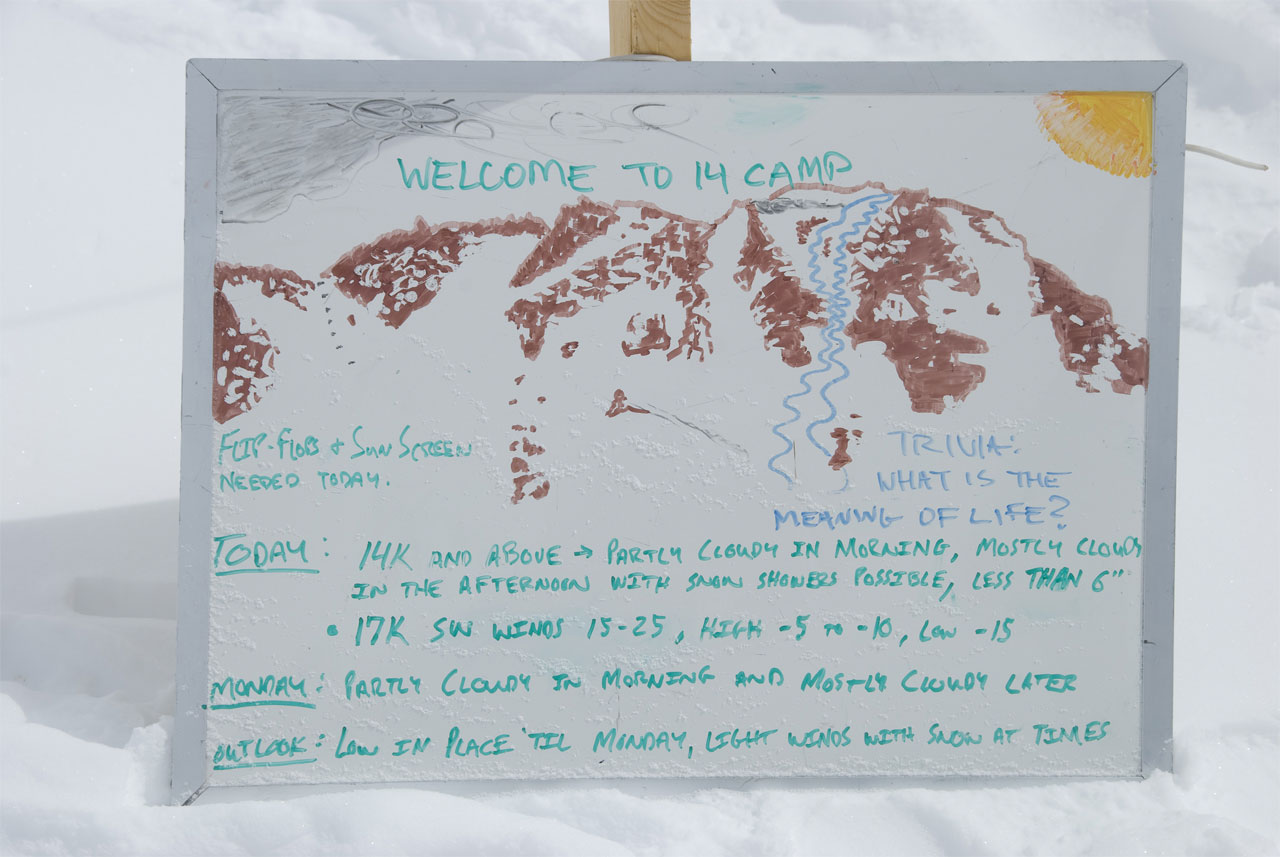 WELCOME TO 14 CAMP
FLIP-FLOPS & SUN SCREEN
NEEDED TODAY.
TRIVIA:
WHAT IS THE
MEANING OF LIFE?
TODAY: 14K AND ABOVE → PARTLY CLOUDY IN MORNING, MOSTLY CLOUDY
IN THE AFTERNOON WITH SNOW SHOWERS POSSIBLE, LESS THAN 6"
• 17K SW WINDS 15-25, HIGH -5 TO -10, LOW -15
MONDAY: PARTLY CLOUDY IN MORNING AND MOSTLY CLOUDY LATER
OUTLOOK: LOW IN PLACE 'TIL MONDAY, LIGHT WINDS WITH SNOW AT TIMES